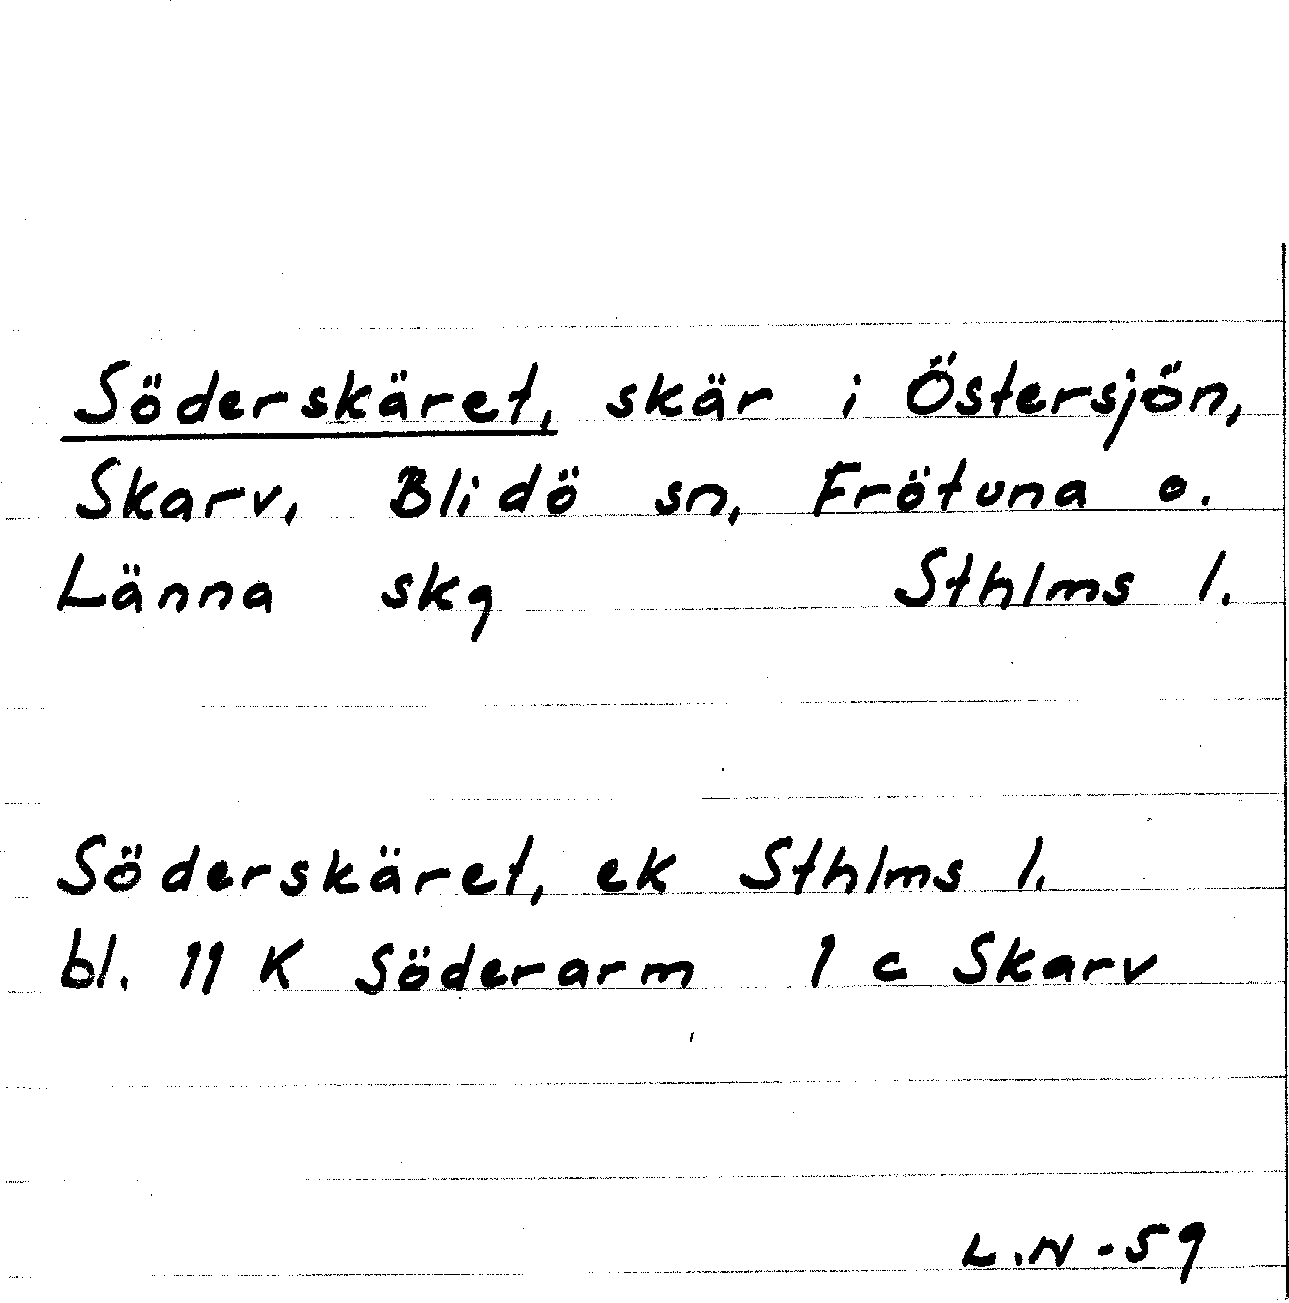 Söderskäret, skär i Östersjön,
Skarv, Blidö sn, Frötuna o.
Länna skg Sthlms l.
Söderskäret, ek Sthlms l.
bl. 11 K Söderarm 1 c Skarv
L.N -59